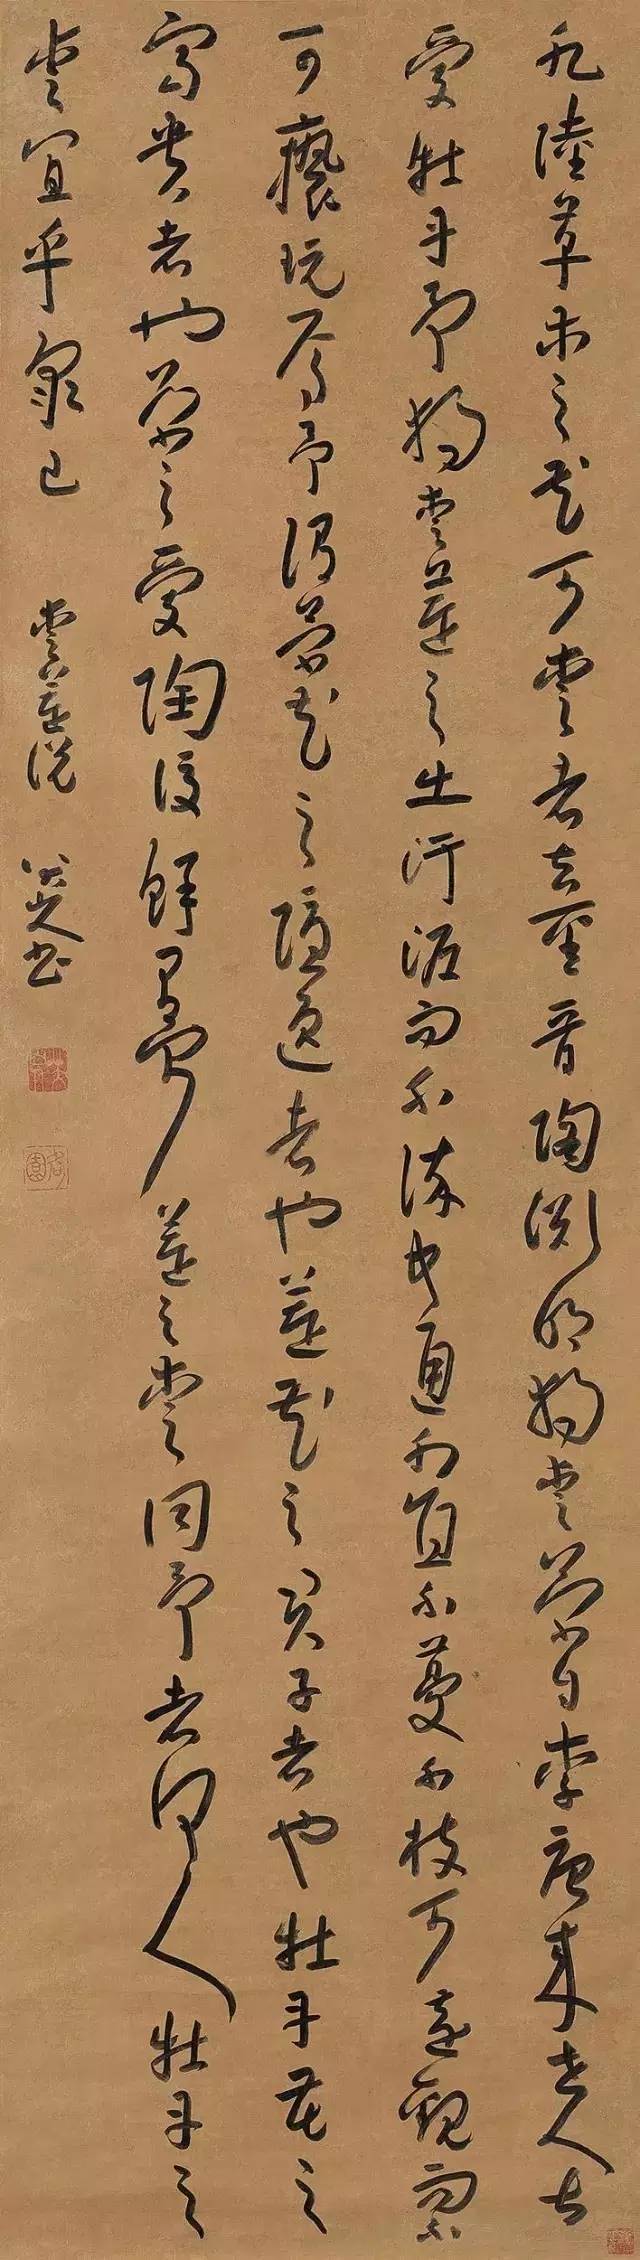 陸草木之花可愛者甚蕃晉陶淵明獨愛菊自李唐來世人甚
愛牡丹予獨愛蓮之出汙泥而不染中通外直不蔓不枝可遠觀而不
可褻玩焉予謂菊花之隱逸者也蓮花之君子者也牡丹花之
富貴者也菊之愛陶後鮮有聞蓮之愛同予者何人牡丹之
愛宜乎衆已
愛蓮說
八大山人書